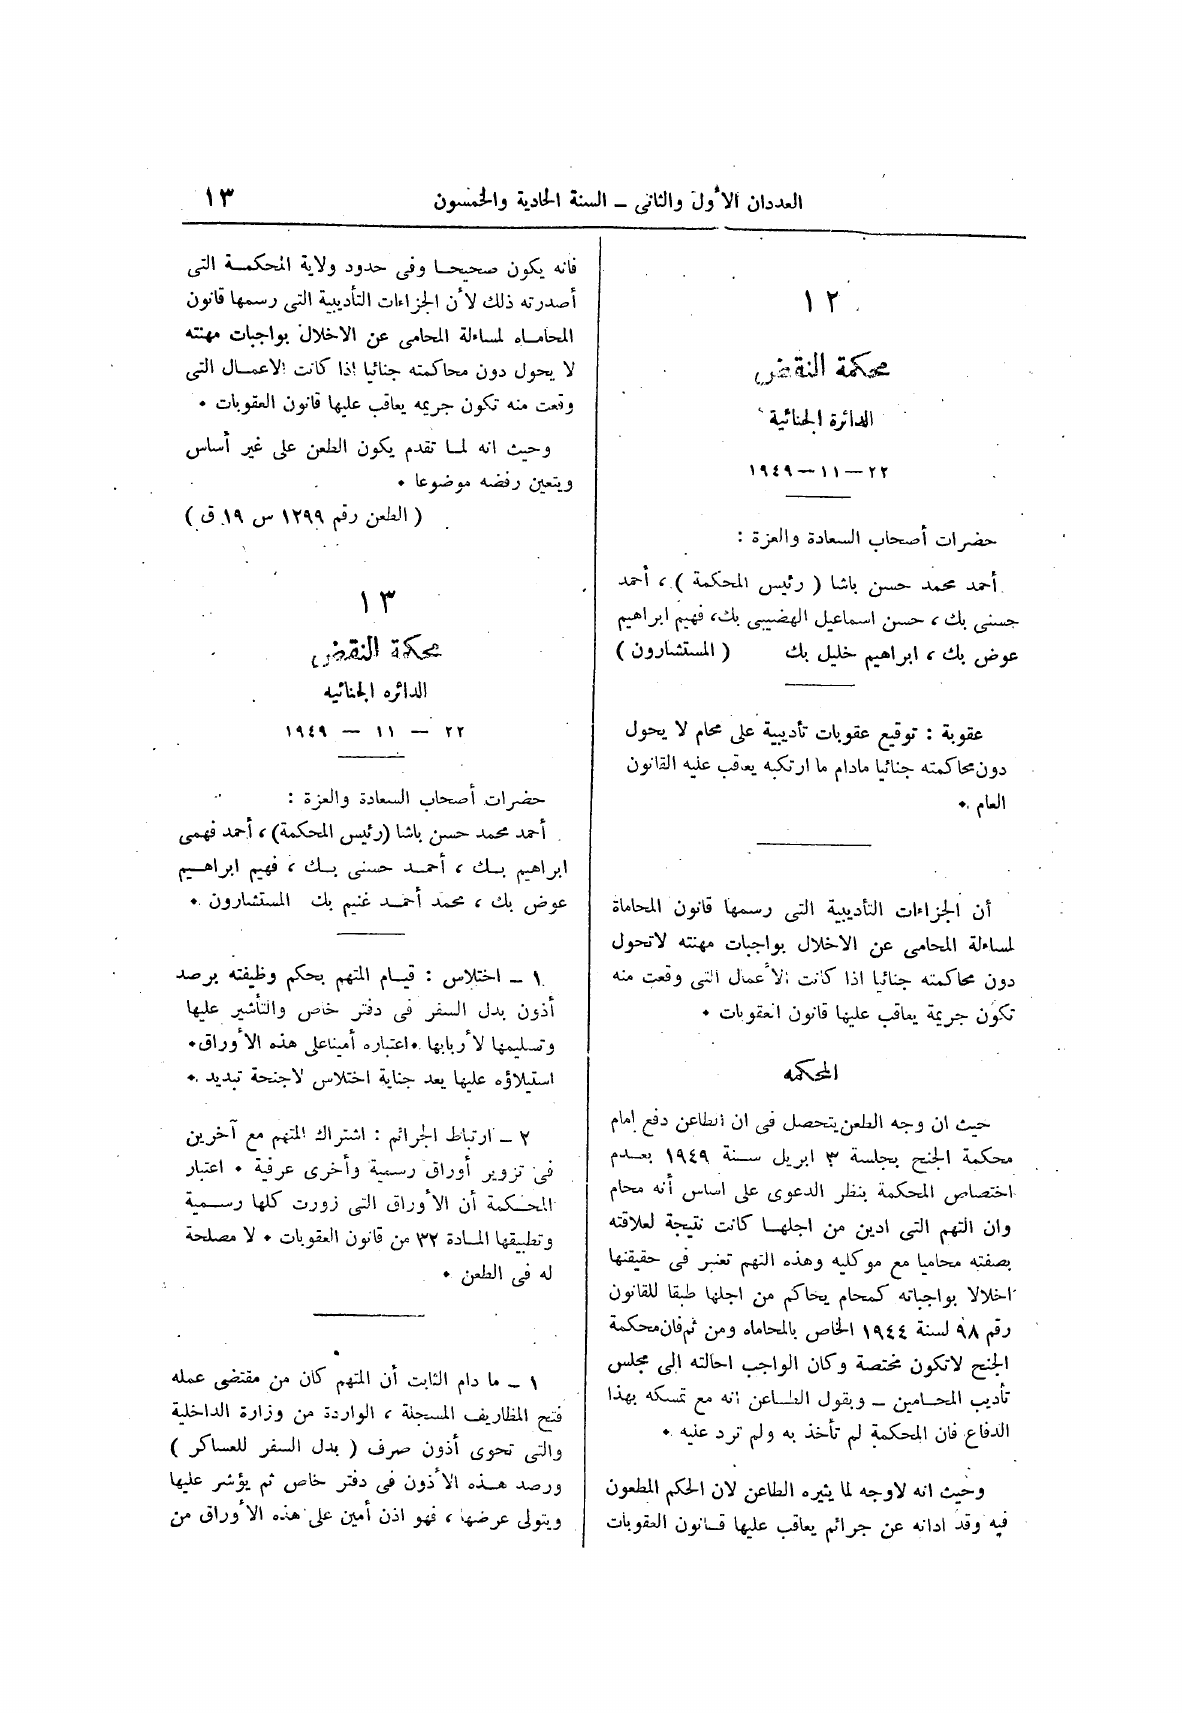 العددان الأول والثانى – السنة الحادية والخمسون
١٣
١٢
محكمة النقض
الدائرة الجنائية
٢٢ – ١١ – ١٩٤٩
حضرات أصحاب السعادة والعزة :
أحمد محمد حسن باشا ( رئيس المحكمة ) ، أحمد
حسنى بك ، حسن اسماعيل الهضيبى بك، فهيم ابراهيم
عوض بك ، ابراهيم خليل بك ( المستشارون )
عقوبة : توقيع عقوبات تأديبية على محام لا يحول
دون محاكمته جنائيا مادام ما ارتكبه يعاقب عليه القانون
العام .
أن الجزاءات التأديبية التى رسمها قانون المحاماة
لمساءلة المحامى عن الاخلال بواجبات مهنته لاتحول
دون محاكمته جنائيا اذا كانت الأعمال التى وقعت منه
تكون جريمة يعاقب عليها قانون العقوبات .
المحكمه
حيث ان وجه الطعن يتحصل فى ان الطاعن دفع امام
محكمة الجنح بجلسة ٣ ابريل سنة ١٩٤٩ بعدم
اختصاص المحكمة بنظر الدعوى على اساس أنه محام
وان التهم التى ادين من اجلها كانت نتيجة لعلاقته
بصفته محاميا مع موكليه وهذه التهم تعتبر فى حقيقتها
اخلالا بواجباته كمحام يحاكم من اجلها طبقا للقانون
رقم ٩٨ لسنة ١٩٤٤ الخاص بالمحاماه ومن ثم فان محكمة
الجنح لاتكون مختصة وكان الواجب احالته الى مجلس
تأديب المحامين – ويقول الطاعن انه مع تمسكه بهذا
الدفاع فان المحكمة لم تأخذ به ولم ترد عليه .
وحيث انه لاوجه لما يثيره الطاعن لان الحكم المطعون
فيه وقد ادانه عن جرائم يعاقب عليها قانون العقوبات
فانه يكون صحيحا وفى حدود ولاية المحكمة التى
أصدرته ذلك لأن الجزاءات التأديبية التى رسمها قانون
المحاماه لمساءلة المحامى عن الاخلال بواجبات مهنته
لا يحول دون محاكمته جنائيا اذا كانت الاعمال التى
وقعت منه تكون جريمه يعاقب عليها قانون العقوبات .
وحيث انه لما تقدم يكون الطعن على غير أساس
ويتعين رفضه موضوعا .
( الطعن رقم ١٢٩٩ س ١٩ ق )
١٣
محكمة النقض
الدائره الجنائيه
٢٢ – ١١ – ١٩٤٩
حضرات أصحاب السعادة والعزة :
أحمد محمد حسن باشا (رئيس المحكمة) ، أحمد فهمى
ابراهيم بك ، أحمد حسنى بك ، فهيم ابراهيم
عوض بك ، محمد أحمد غنيم بك المستشارون .
١ – اختلاس : قيام المتهم بحكم وظيفته برصد
أذون بدل السفر فى دفتر خاص والتأشير عليها
وتسليمها لأربابها . اعتباره أمينا على هذه الأوراق.
استيلاؤه عليها يعد جناية اختلاس لاجنحة تبديد .
٢ – ارتباط الجرائم : اشتراك المتهم مع آخرين
فى تزوير أوراق رسمية وأخرى عرفية . اعتبار
المحكمة أن الأوراق التى زورت كلها رسمية
وتطبيقها المادة ٣٢ من قانون العقوبات . لا مصلحة
له فى الطعن .
١ – ما دام الثابت أن المتهم كان من مقتضى عمله
فتح المظاريف المسجلة ، الواردة من وزارة الداخلية
والتى تحوى أذون صرف ( بدل السفر للعساكر )
ورصد هذه الأذون فى دفتر خاص ثم يؤشر عليها
ويتولى عرضها ، فهو اذن أمين على هذه الأوراق من